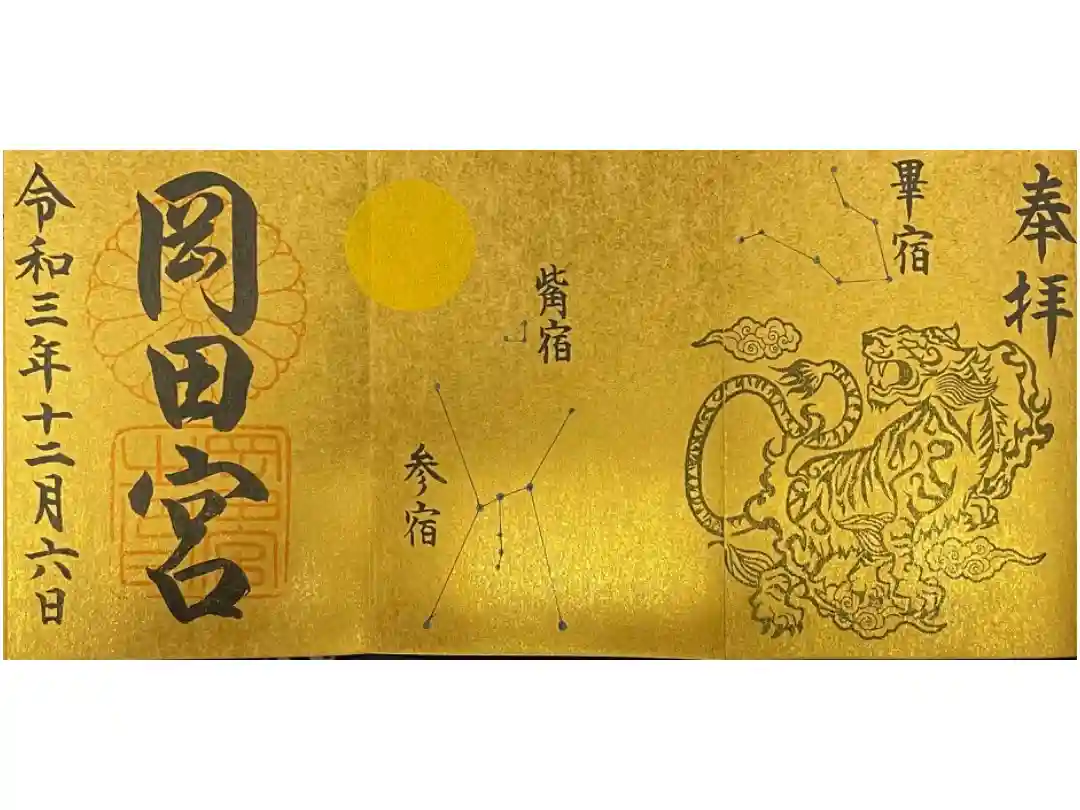 奉拝
畢宿
觜宿
参宿
岡田宮
令和三年十二月六日